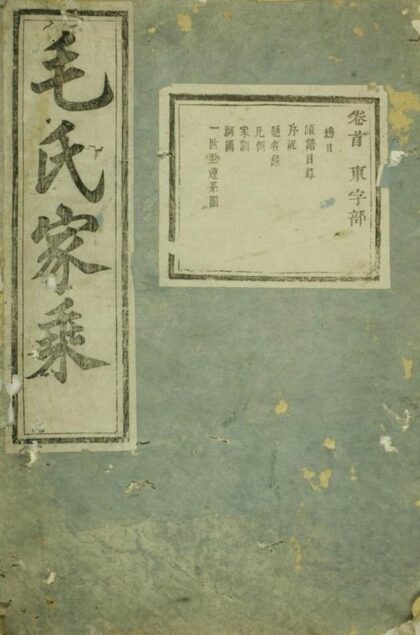 毛氏家乘
卷首 東字部
總目
譜目錄
序
題名錄
凡例
家訓
祠圖
一世至系圖